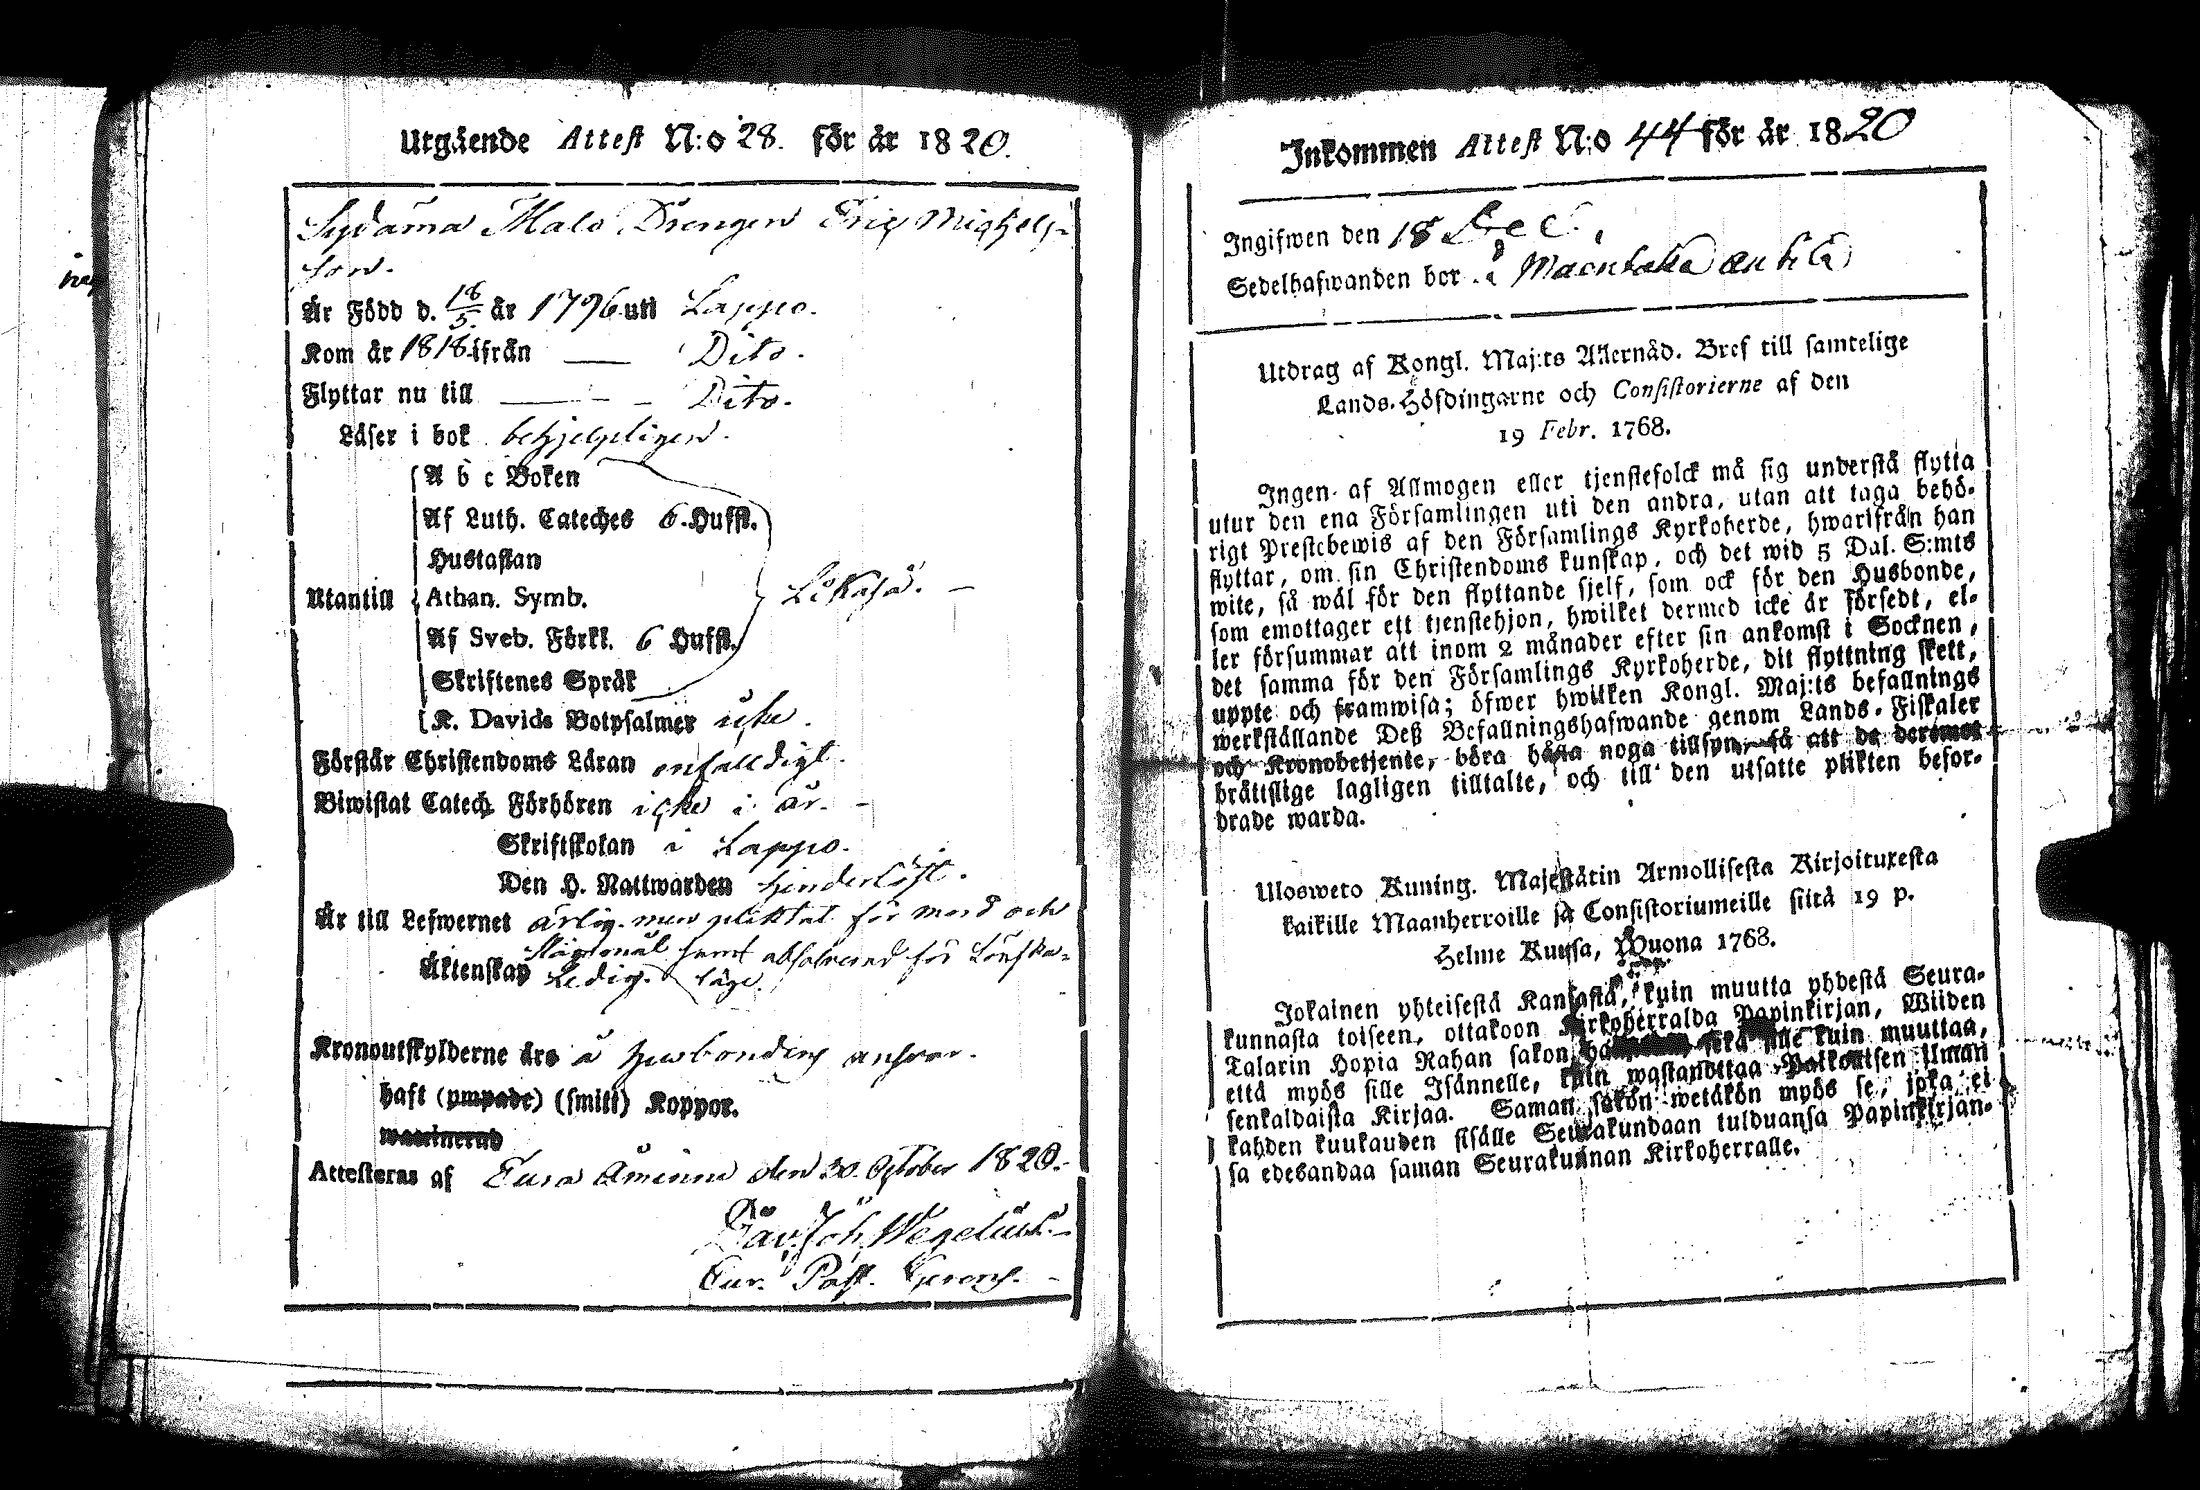 Utgående Attest N:o 28. för år 1820.
Sydäma Malo Drengen Eric Michels-
son.
Är Född d. 18/5. år 1796 uti Lappo.
Kom år 1818 ifrån — Dito.
Flyttar nu till — - – Dito.
Läser i bok behjelpligen.
A b c Boken
Af Luth. Cateches 6. Hufst.
Hustaflan
Utantill Athan. Symb. Likaså. —
Af Sveb. Förkl. 6 Hufst.
Skriftenes Språk
K. Davids Botpsalmer icke.
Förstår Christendoms Läran enfalldigt.
Biwistat Catech. Förhören icke i år. -
Skriftskolan i Lappo.
Den H. Nattwarden hinderlöst.
Är till Lefwernet ärlig. men pliktat för mord och
slagsmål samt absolverad för Lönska-
Äktenskap Ledig. läge.
Kronoutskylderne äro å husbondens ansvar.
haft (ympade) (smitt) Koppor.
waccinerad
Attesteras af Eura Åminne den 30. October 1820.
Dav. Joh. Wegelius.
Cur. Past. Gerens. -
Inkommen Attest N:o 44 för år 1820
Ingifwen den 18 Dec.
Sedelhafwanden bor å
Utdrag af Kongl. Maj:ts Allernåd. Bref till samtelige
Lands-Höfdingarne och Consistorierne af den
19 Febr. 1768.
Ingen af Allmogen eller tjenstefolck må sig understå flytta
utur den ena Församlingen uti den andra, utan att taga behö-
rigt Prestebewis af den Församlings Kyrkoherde, hwarifrån han
flyttar, om sin Christendoms kunskap, och det wid 5 Dal. S:mts
wite, så wäl för den flyttande sjelf, som ock för den Husbonde,
som emottager ett tjenstehjon, hwilket dermed icke är försedt, el-
ler försummar att inom 2 månader efter sin ankomst i Socknen,
det samma för den Församlings Kyrkoherde, dit flyttning skett,
uppte och framwisa; öfwer hwilken Kongl. Maj:ts befallnings
werkställande Deß Befallningshafwande genom Lands-Fiskaler
och Kronobetjente, böra hålla noga tillsyn, så att de deremot
bråttslige lagligen tilltalte, och till den utsatte plikten befor-
drade warda.
Ulosweto Kuning. Majestätin Armollisesta Kirjoituxesta
kaikille Maanherroille ja Consistoriumeille siitä 19 p.
Helme Kuusa, Wuona 1768.
Jokainen yhteisestä Kansasta, kuin muutta yhdestä Seura-
kunnasta toiseen, ottakoon Kirkoherralda Papinkirjan, Wiiden
Talarin Hopia Rahan sakon sekä sille kuin muuttaa,
että myös sille Isännelle, kuin wastanottaa Palkollisen ilman
senkaldaista Kirjaa. Saman sakon wetäkön myös se, joka ei
kahden kuukauden sisälle Seurakundaan tulduansa Papinkirjan-
sa edesandaa saman Seurakunnan Kirkoherralle.